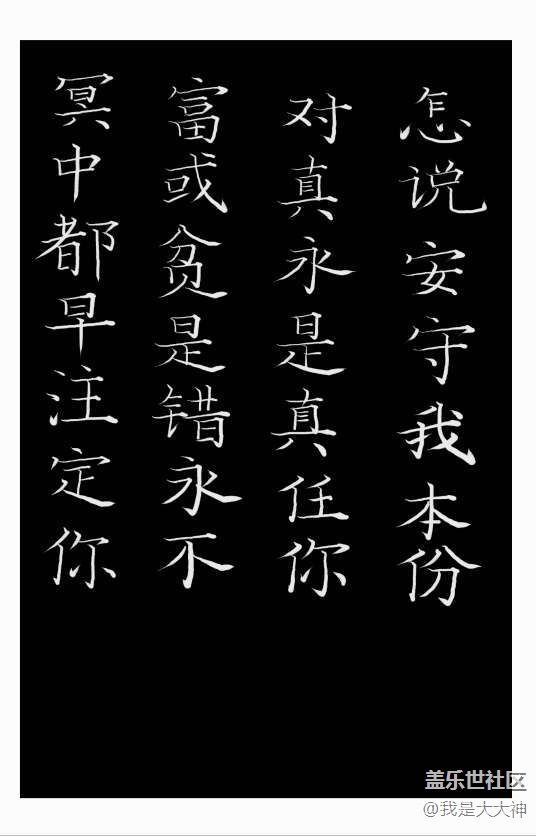 怎说安守我本份
对真永是真任你
富或贫是错永不
冥中都早注定你
盖乐世社区
@我是大大神